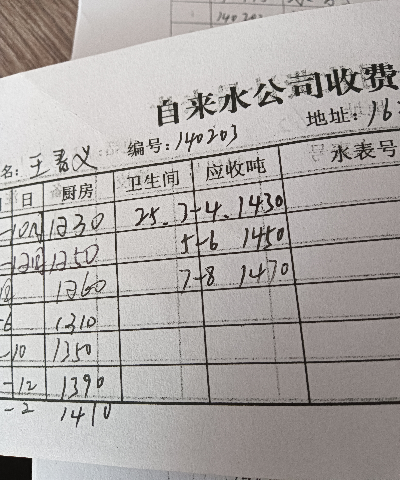 140203
自来水公司收费
名: 王 义 编号: 140203 地址: 16
日 厨房 卫生间 应收吨 水表号
-10月 1230 25. 3-4. 1430
-12月 1250 5-6 1450
1260 7-8 1470
-6 1310
-10 1350
-12 1390
-2 1410